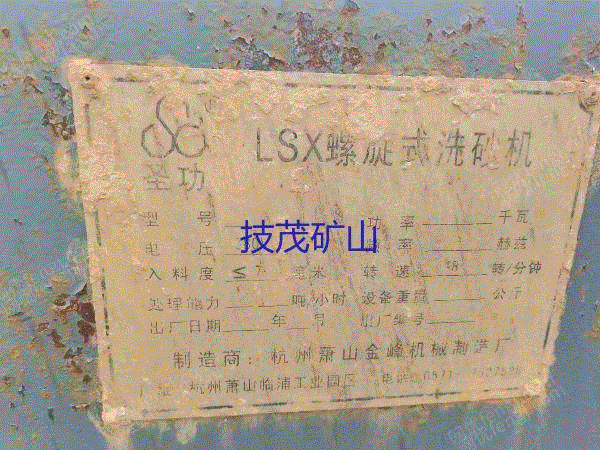 LSX螺旋式洗砂机
圣功
型号 功率 千瓦
电压 率 赫兹
技茂矿山
入料度 ≤ 毫米 转速 38 转/分钟
处理能力 吨/小时 设备重量 公斤
出厂日期 年 月 出厂编号
制造商：杭州萧山金峰机械制造厂
杭州萧山临浦工业园区 电话 0571